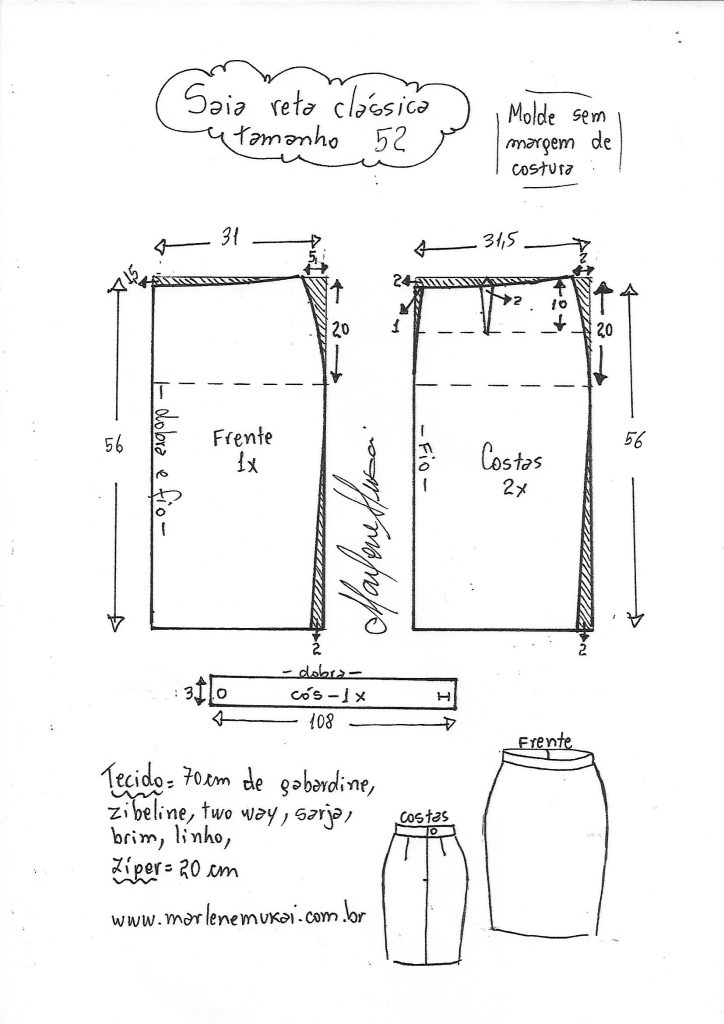 Saia reta clássica
tamanho 52
Molde sem
margem de
costura
31
5
1,5
56
20
- dobra e fio -
Frente
1x
2
31,5
2
2
1
2
10
20
- Fio -
Costas
2x
56
2
Marlene Mukai
- dobra -
3
cós - 1x
108
Tecido = 70 cm de gabardine,
zibeline, two way, sarja,
brim, linho,
Zíper = 20 cm
www.marlenemukai.com.br
costas
Frente